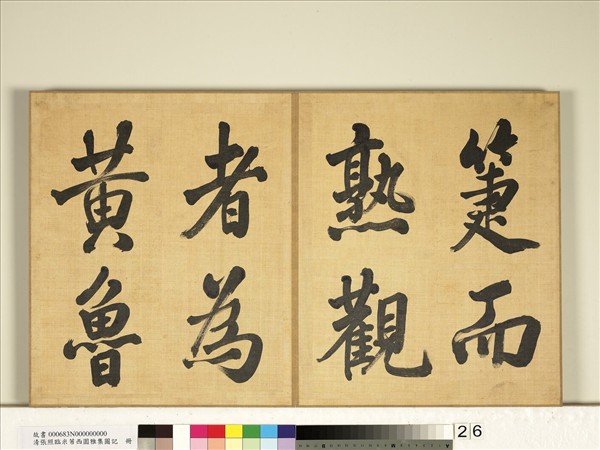 箑而
熟觀
者為
黃魯
故書 000683N000000000
清張照臨米芾西園雅集圖記 冊
26